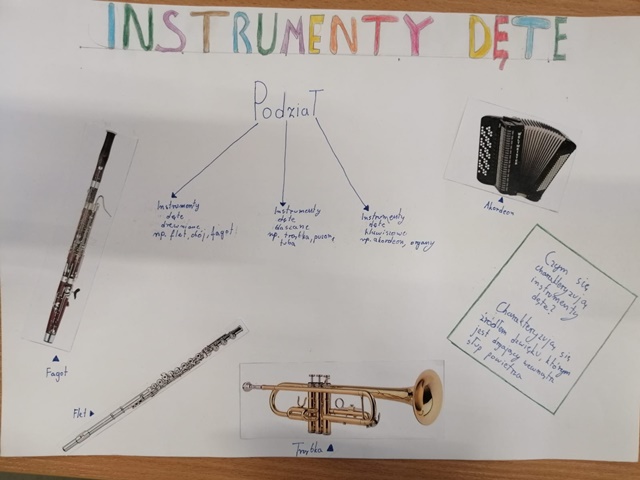 INSTRUMENTY DĘTE
Podział
Instrumenty
dęte
drewniane
np. flet, obój, fagot
Instrumenty
dęte
blaszane
np. trąbka, puzon,
tuba
Instrumenty
dęte
klawiszowe
np. akordeon, organy
Akordeon
Czym się
charakteryzują
instrumenty
dęte?
Charakteryzują się
źródłem dźwięku, którym
jest drgający wewnątrz
słup powietrza
Fagot
Flet
Trąbka